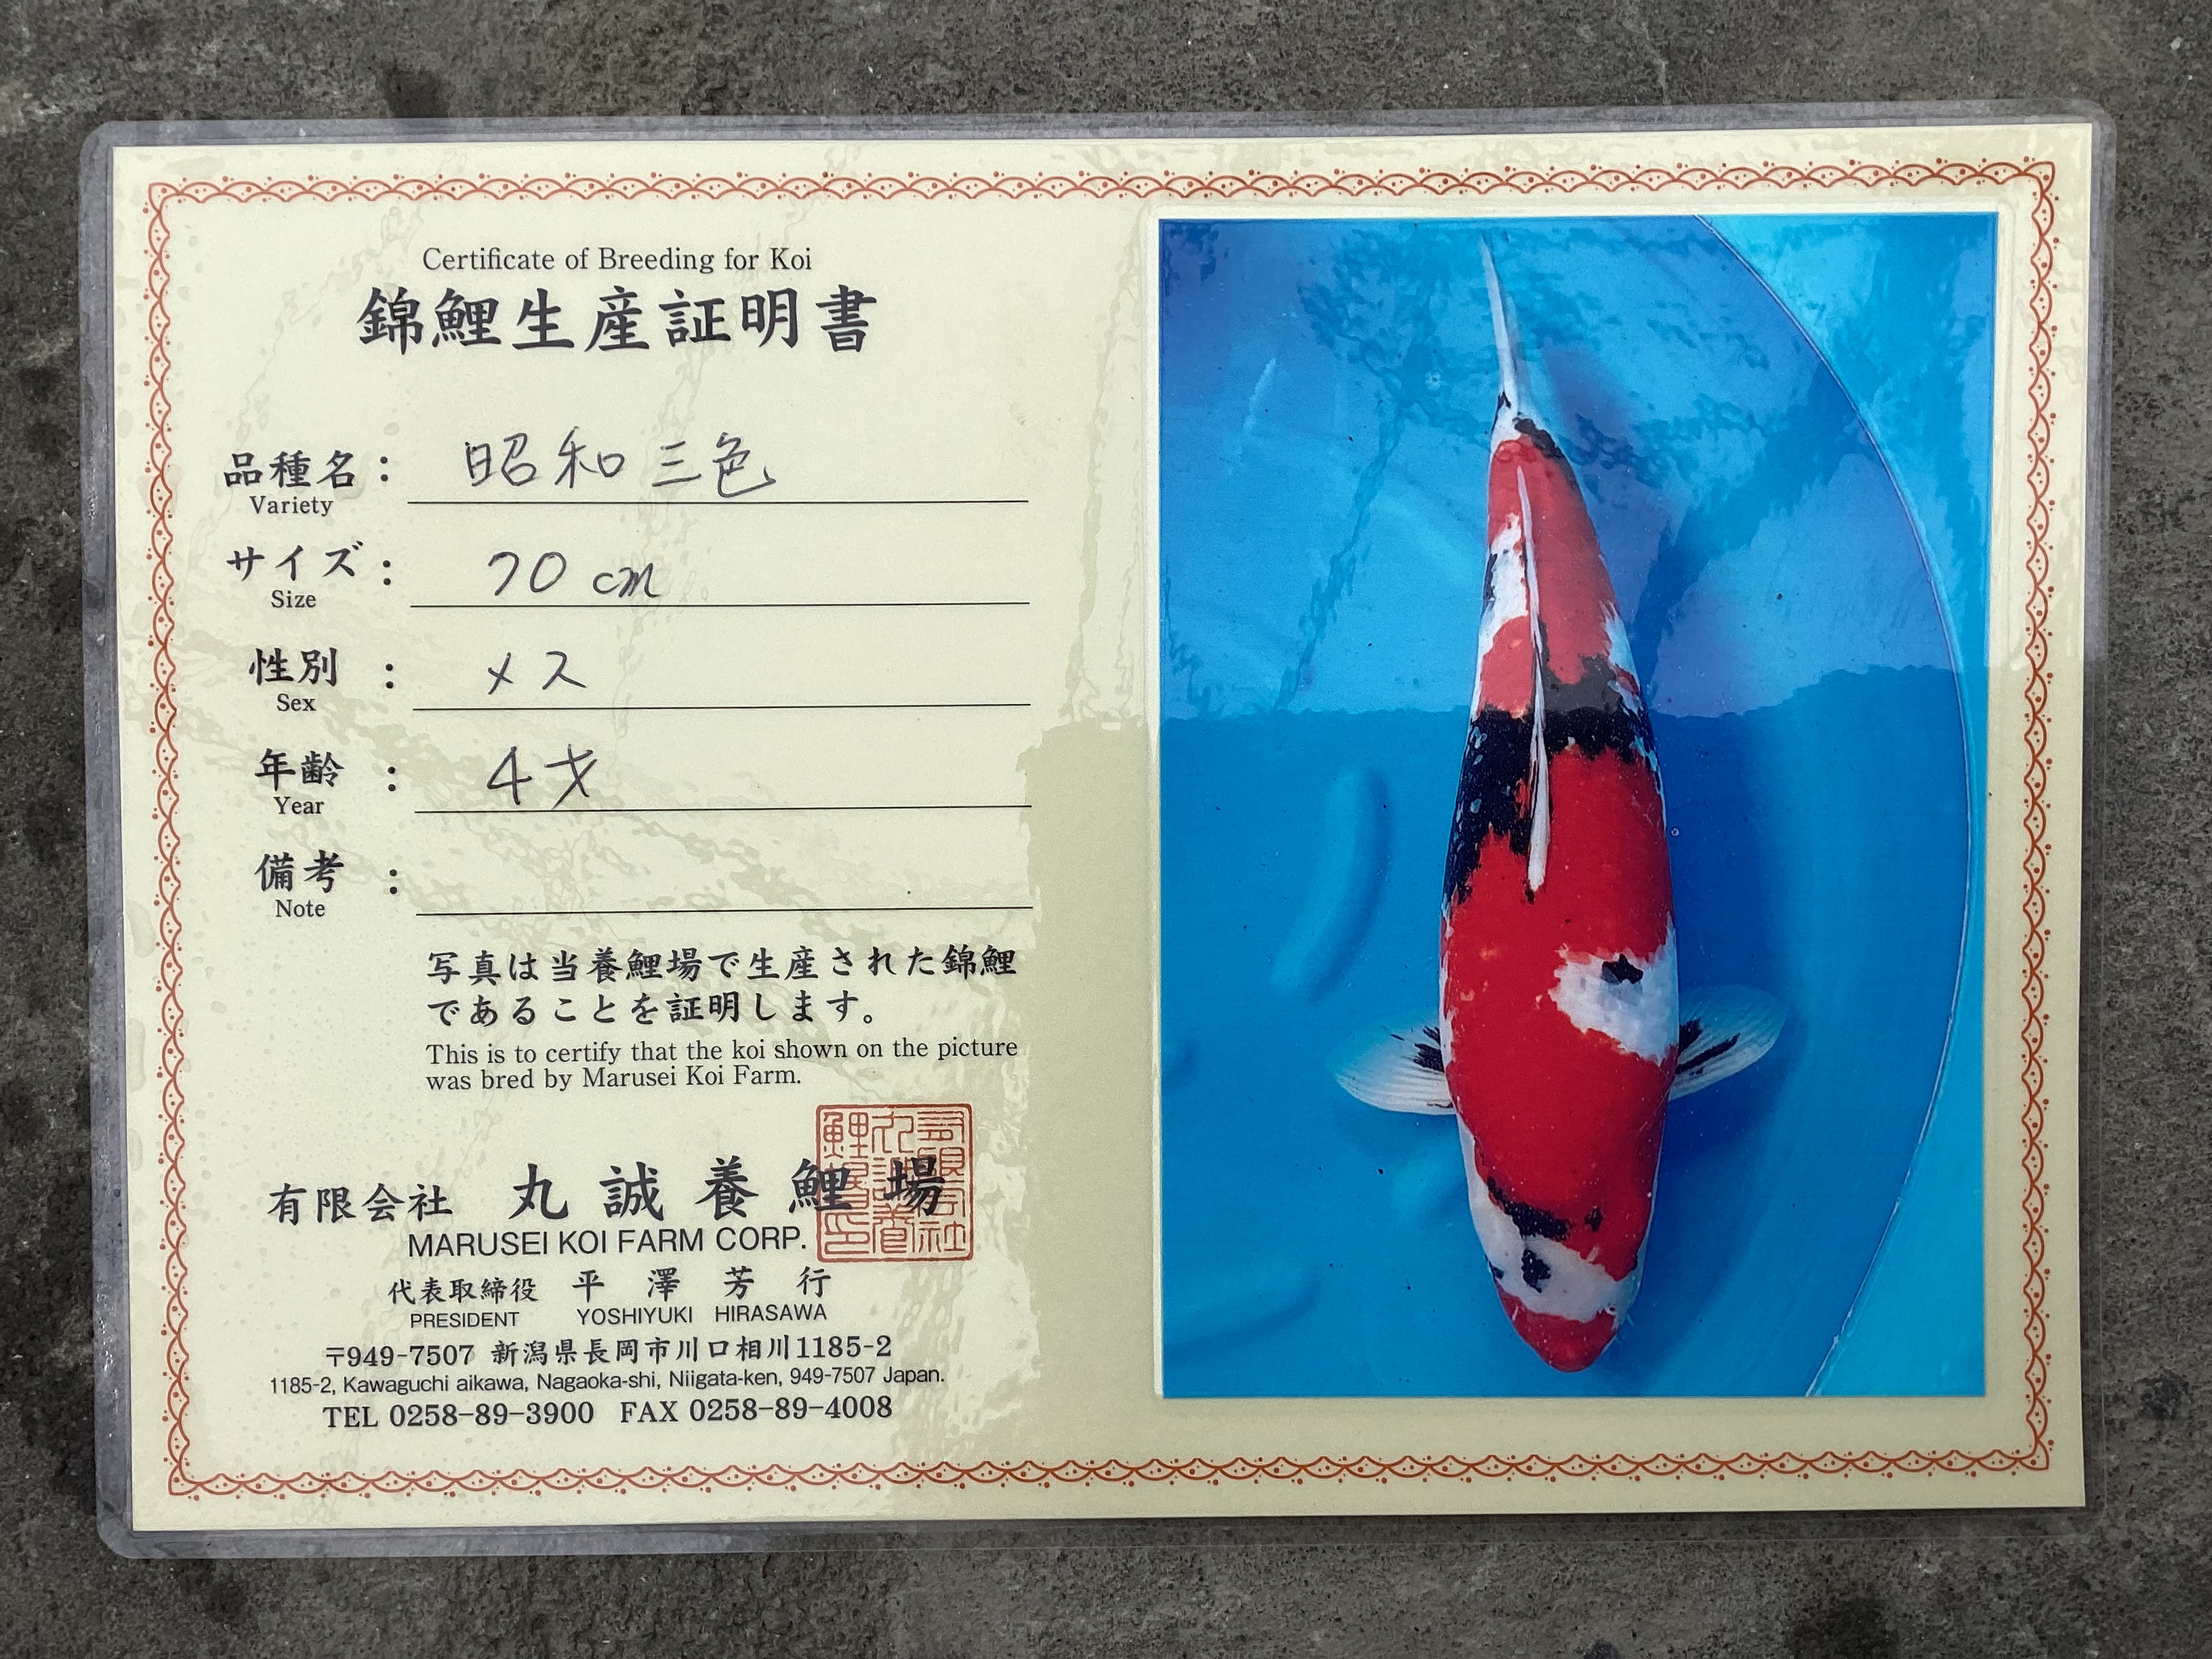 Certificate of Breeding for Koi
錦鯉生産証明書
品種名: 昭和三色
Variety
サイズ: 70 cm
Size
性別: メス
Sex
年齢: 4才
Year
備考:
Note
写真は当養鯉場で生産された錦鯉
であることを証明します。
This is to certify that the koi shown on the picture
was bred by Marusei Koi Farm.
有限会社 丸誠養鯉場
MARUSEI KOI FARM CORP.
代表取締役 平澤芳行
PRESIDENT YOSHIYUKI HIRASAWA
〒949-7507 新潟県長岡市川口相川1185-2
1185-2, Kawaguchi aikawa, Nagaoka-shi, Niigata-ken, 949-7507 Japan.
TEL 0258-89-3900 FAX 0258-89-4008